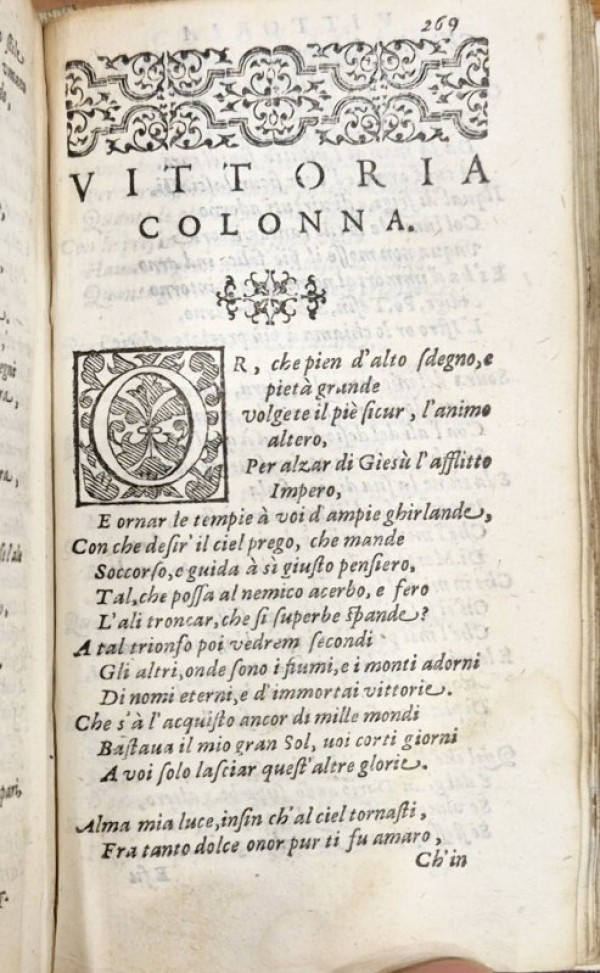 269
VITTORIA
COLONNA.
OR, che pien d'alto ſdegno, e
pietà grande
volgete il piè ſicur, l'animo
altero,
Per alzar di Gieſù l'afflitto
Impero,
E ornar le tempie à voi d'ampie ghirlande,
Con che deſir' il ciel prego, che mande
Soccorſo, e guida à sì giuſto penſiero,
Tal, che poſſa al nemico acerbo, e fero
L'ali troncar, che ſi ſuperbe ſpande?
A tal trionfo poi vedrem ſecondi
Gli altri, onde ſono i fiumi, e i monti adorni
Di nomi eterni, e d'immortai vittorie.
Che s'à l'acquiſto ancor di mille mondi
Baſtaua il mio gran Sol, uoi corti giorni
A voi ſolo laſciar queſt'altre glorie.
Alma mia luce, inſin ch'al ciel tornaſti,
Fra tanto dolce onor pur ti fu amaro,
Ch'in